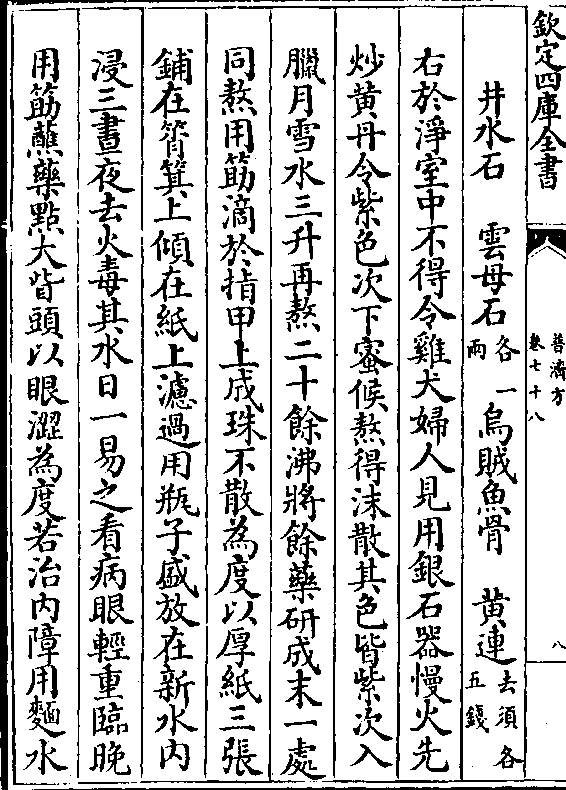 欽定四庫全書
普濟方
卷七十八
八
井水石 雲母石各一兩 烏賊魚骨 黄連去須各五錢
右於淨室中不得令雞犬婦人見用銀石器慢火先
炒黄丹令紫色次下蜜候熬得沫散其色皆紫次入
臘月雪水三升再熬二十餘沸將餘藥研成末一處
同熬用筯滴於指甲上成珠不散為度以厚紙三張
鋪在筲箕上傾在紙上濾過用瓶子盛放在新水内
浸三晝夜去火毒其水日一易之看病眼輕重臨晚
用筯蘸藥點大眥頭以眼澀為度若治内障用麵水